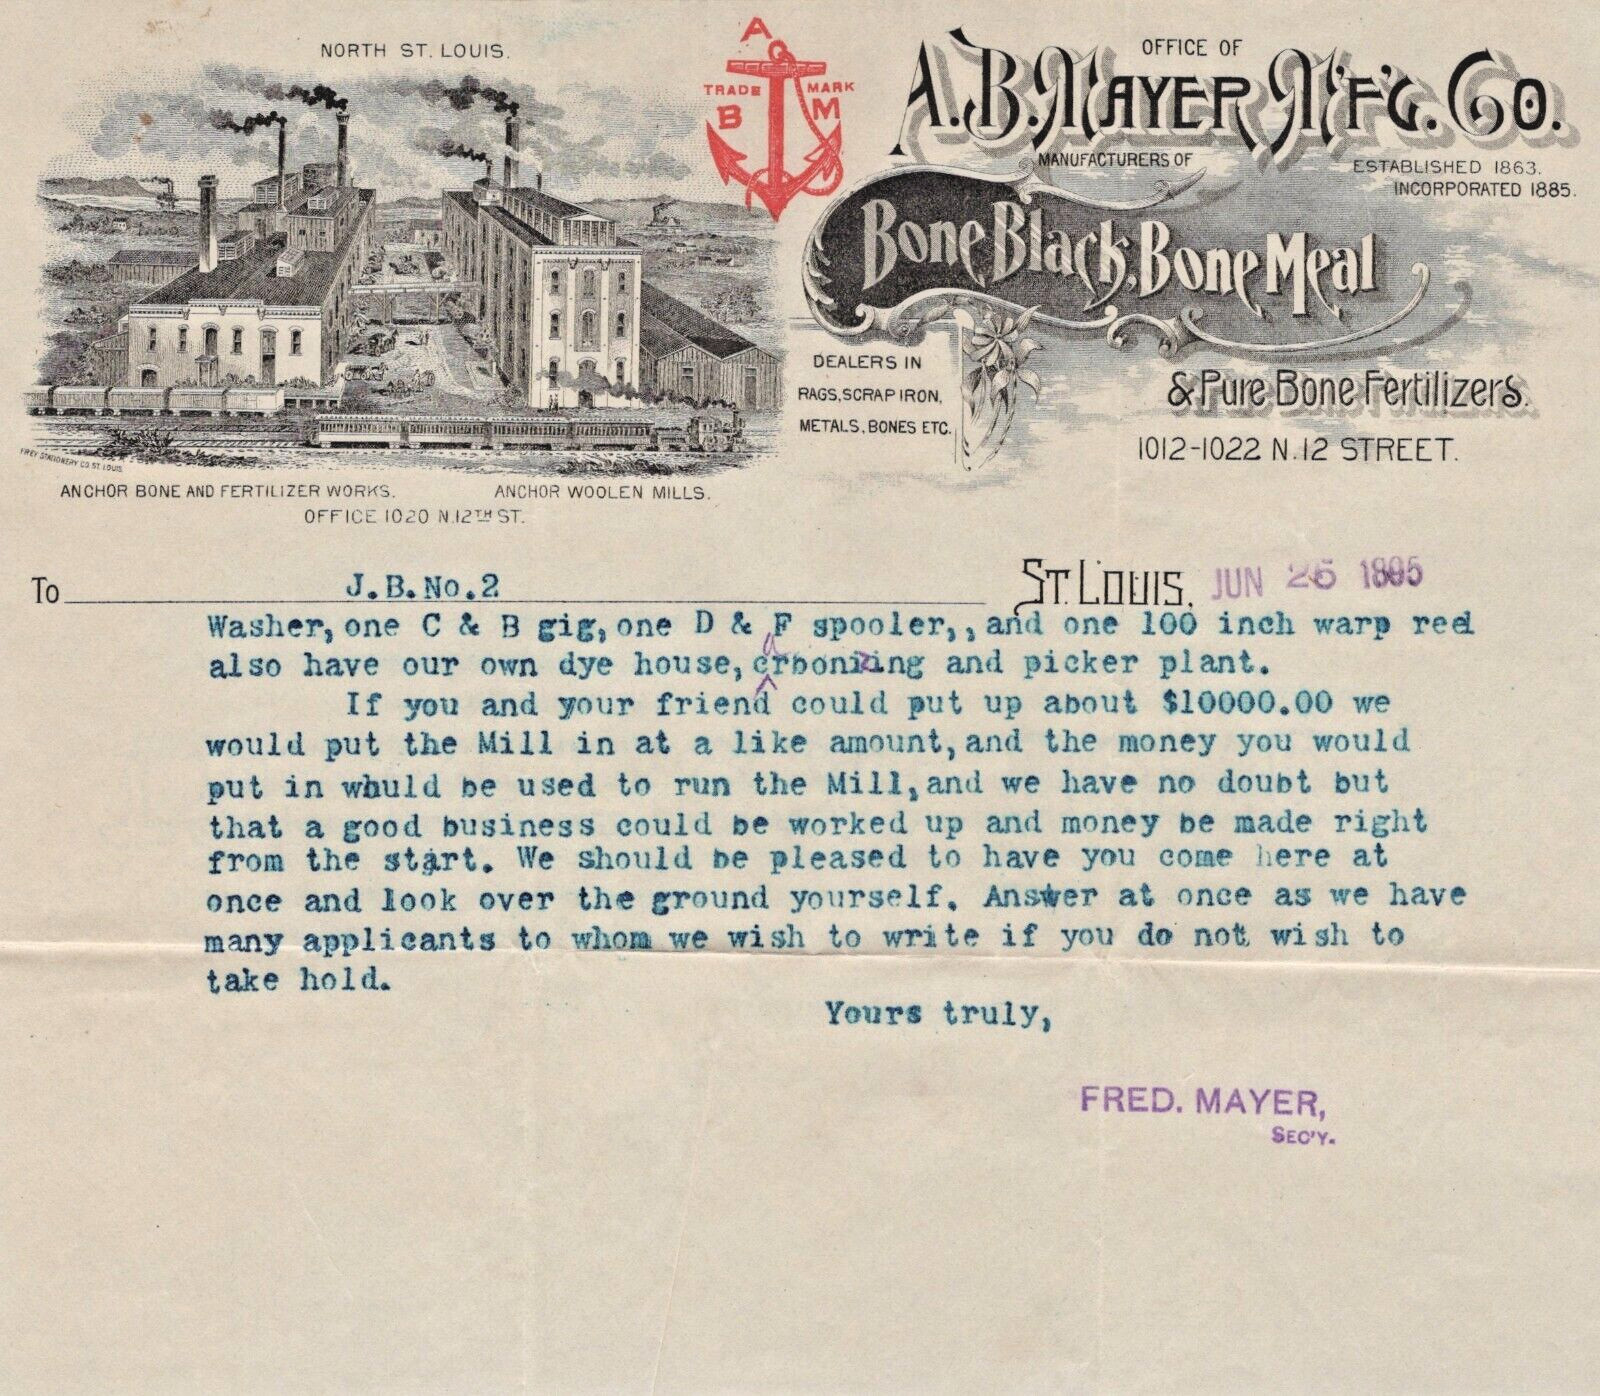 NORTH ST. LOUIS.
A
TRADE MARK
B M
OFFICE OF
A.B. MAYER M'F'G. CO.
MANUFACTURERS OF
ESTABLISHED 1863.
INCORPORATED 1885.
Bone Black, Bone Meal
& Pure Bone Fertilizers.
DEALERS IN
RAGS, SCRAP IRON,
METALS, BONES ETC.
1012-1022 N. 12 STREET.
FREY STATIONERY CO. ST. LOUIS
ANCHOR BONE AND FERTILIZER WORKS.
ANCHOR WOOLEN MILLS.
OFFICE 1020 N. 12TH ST.
To J.B.No.2 ST. LOUIS, JUN 26 1895
Washer, one C & B gig, one D & F spooler,, and one 100 inch warp reel
a
also have our own dye house, crbonizing and picker plant.
If you and your friend could put up about $10000.00 we
would put the Mill in at a like amount, and the money you would
put in whuld be used to run the Mill, and we have no doubt but
that a good business could be worked up and money be made right
from the start. We should be pleased to have you come here at
once and look over the ground yourself. Answer at once as we have
many applicants to whom we wish to write if you do not wish to
take hold.
Yours truly,
FRED. MAYER,
SEC'Y.